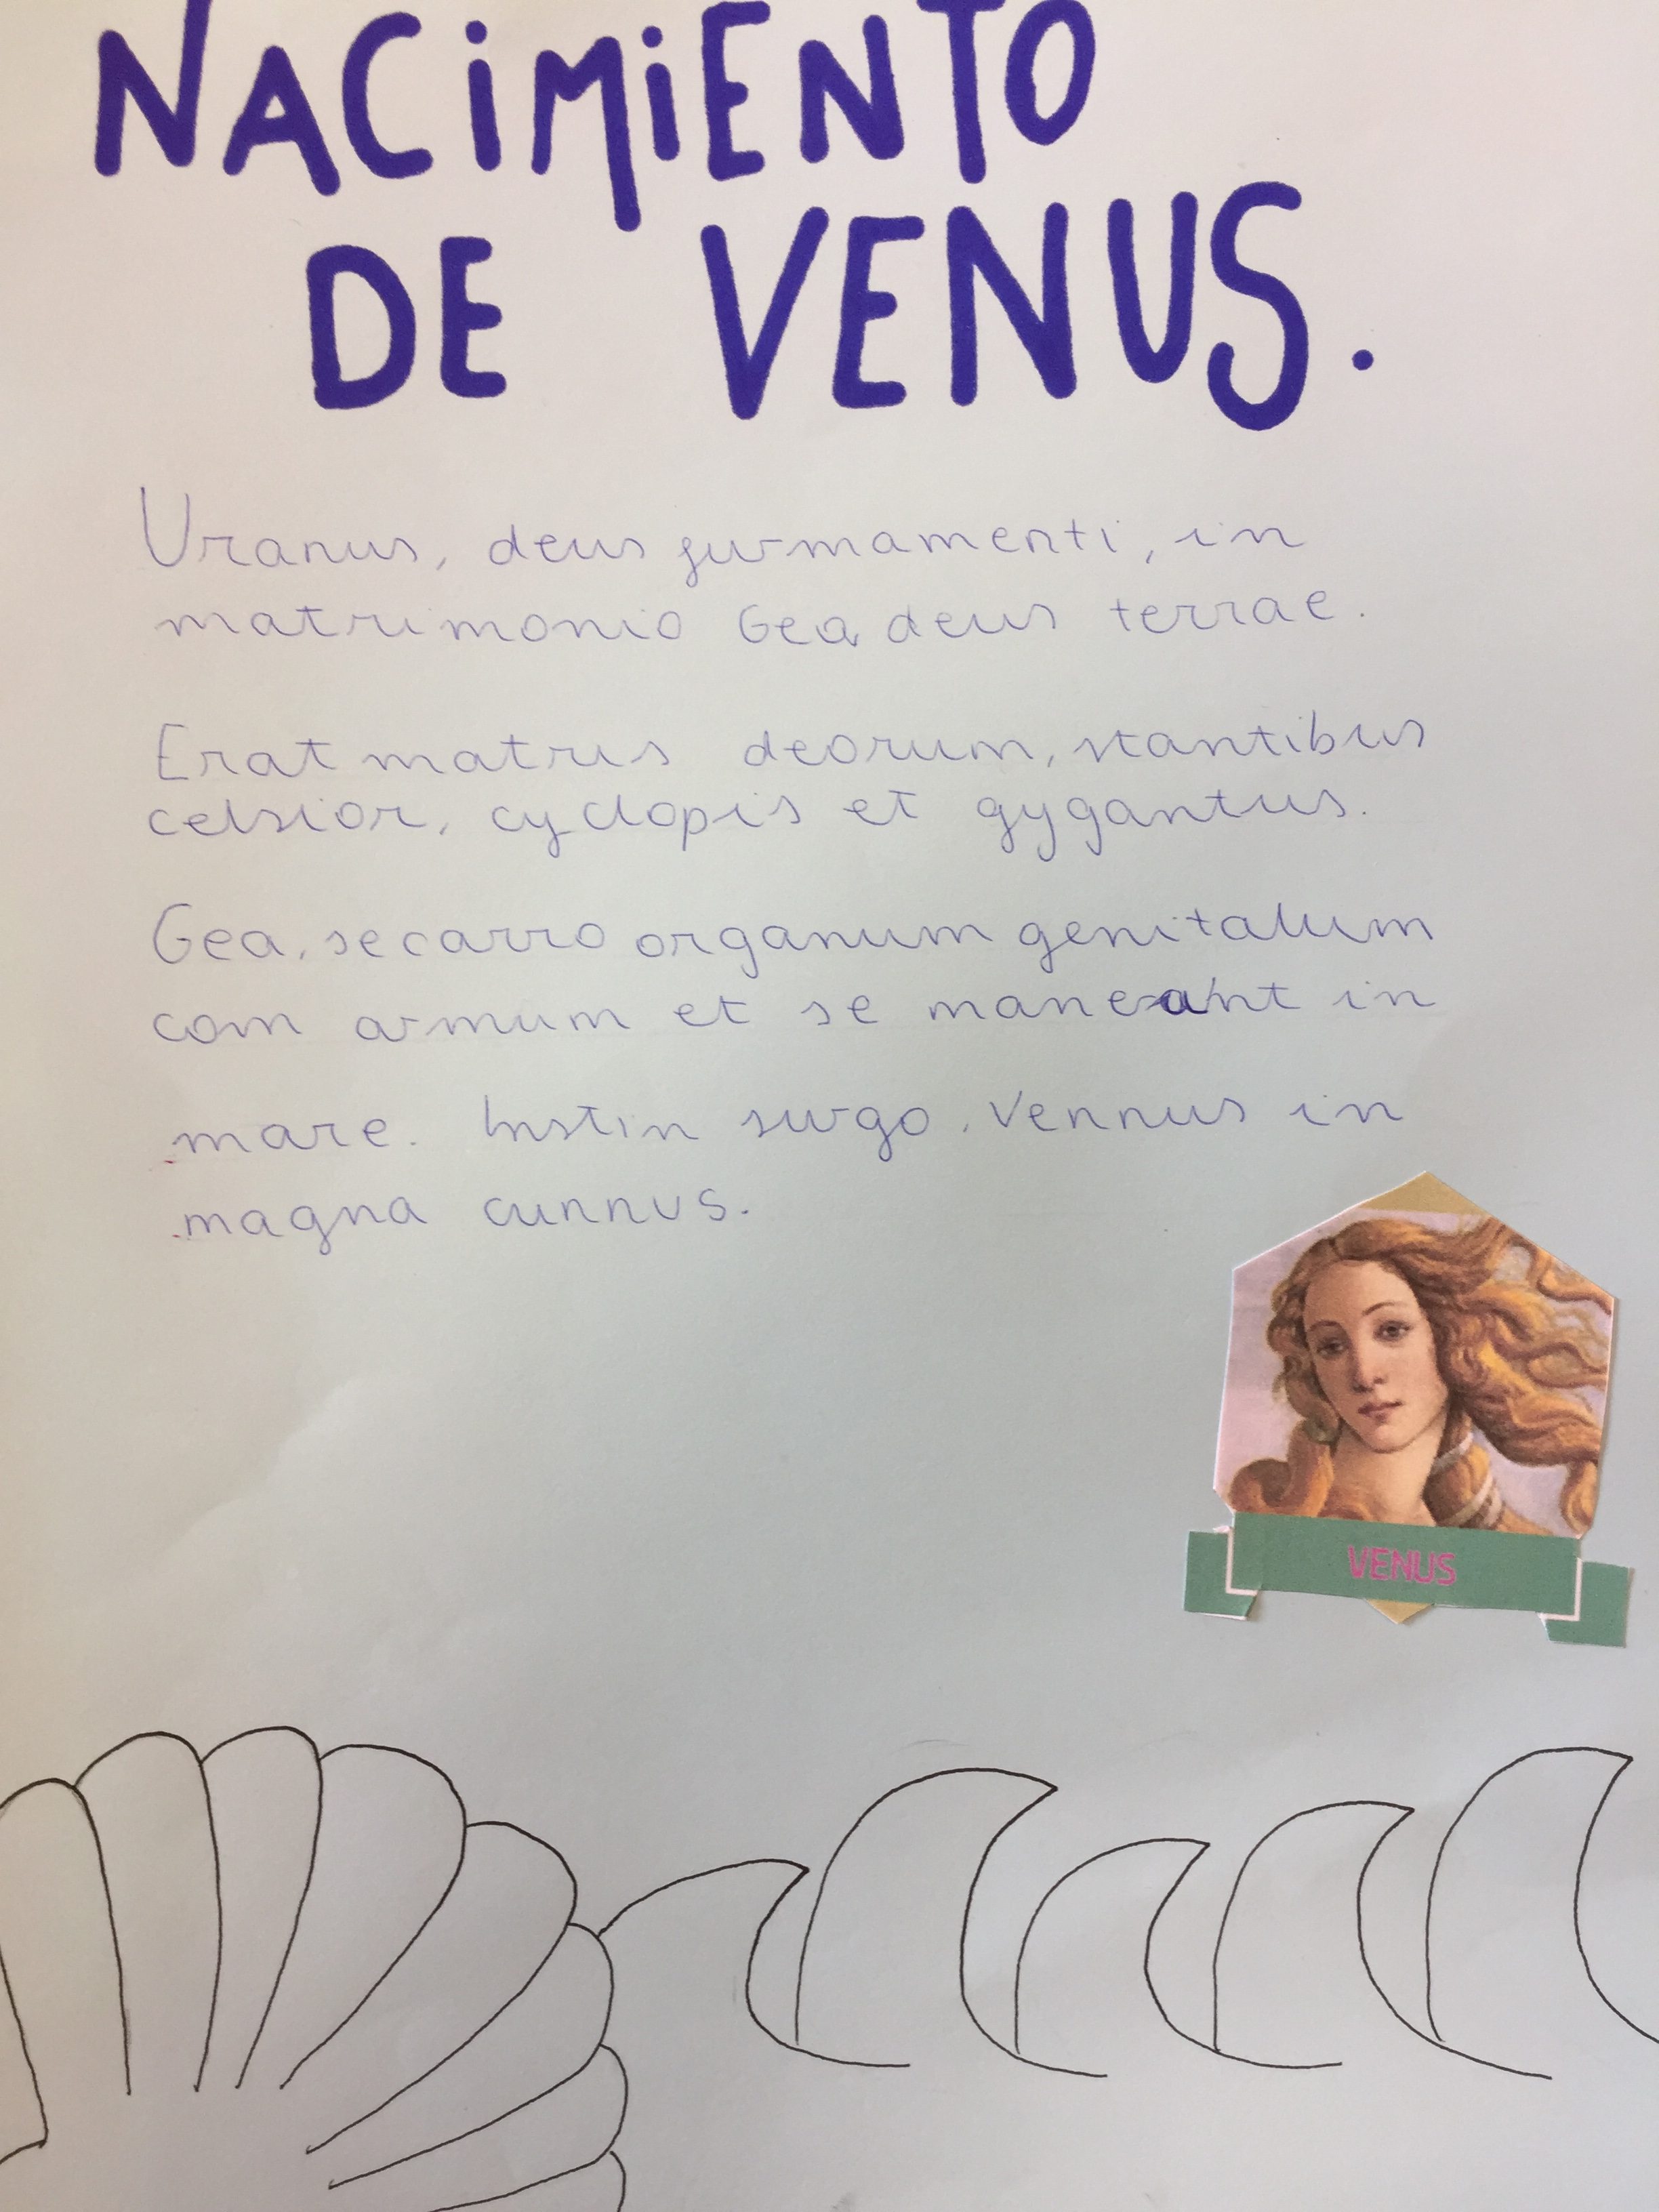 NACIMIENTO
DE VENUS.
Uranus, deus furmamenti, in
matrimonio Gea deus terrae.
Erat matris deorum, stantibus
celsior, cyclopis et gygantus.
Gea, secarro organum genitalum
com armum et se maneant in
mare. Instin surgo, Vennus in
magna cunnus.
VENUS